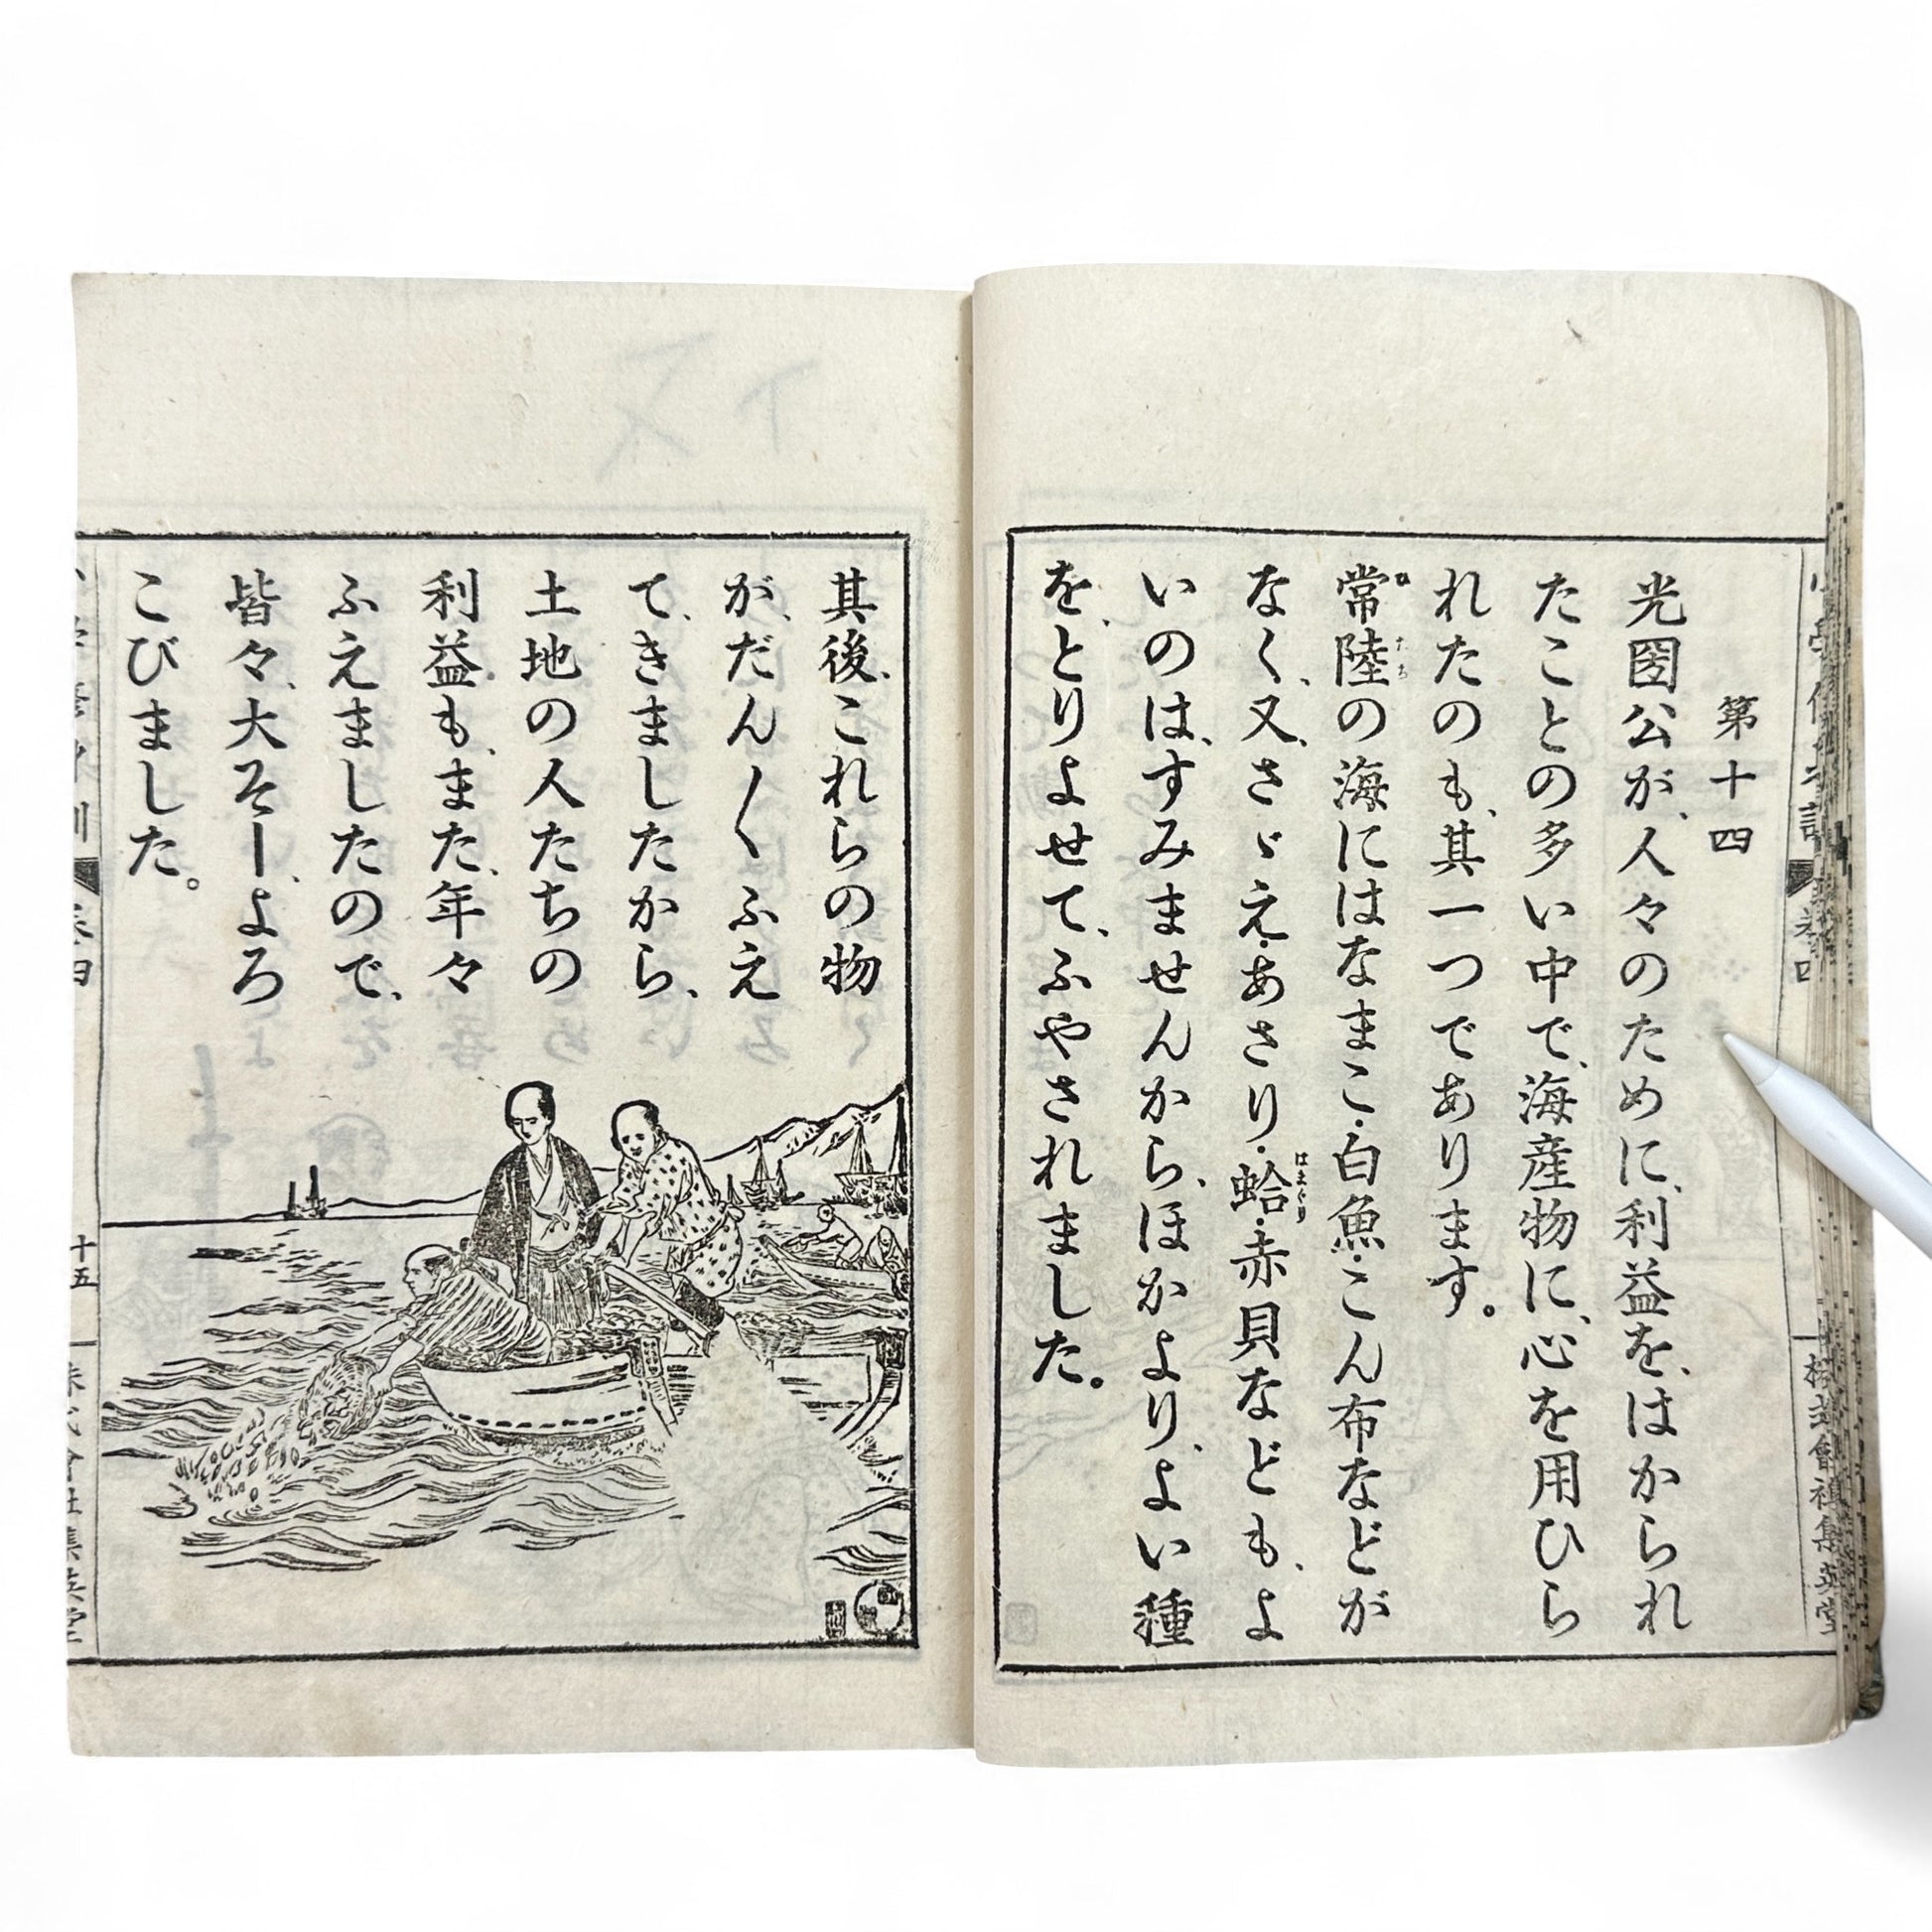 第十四
光圀公が、人々のために、利益を、はかられ
たことの多い中で、海産物に、心を用ひら
れたのも、其一つであります。
常陸の海にはなまこ・白魚・こん布などが
なく、又、さゞえ・あさり・蛤・赤貝なども、よ
いのは、すみませんから、ほかより、よい種
を、とりよせて、ふやされました。
其後、これらの物
が、だん〳〵ふえ
て、きましたから、
土地の人たちの
利益も、また、年々
ふえましたので、
皆々、大そーよろ
こびました。
十五
株式會社集英堂